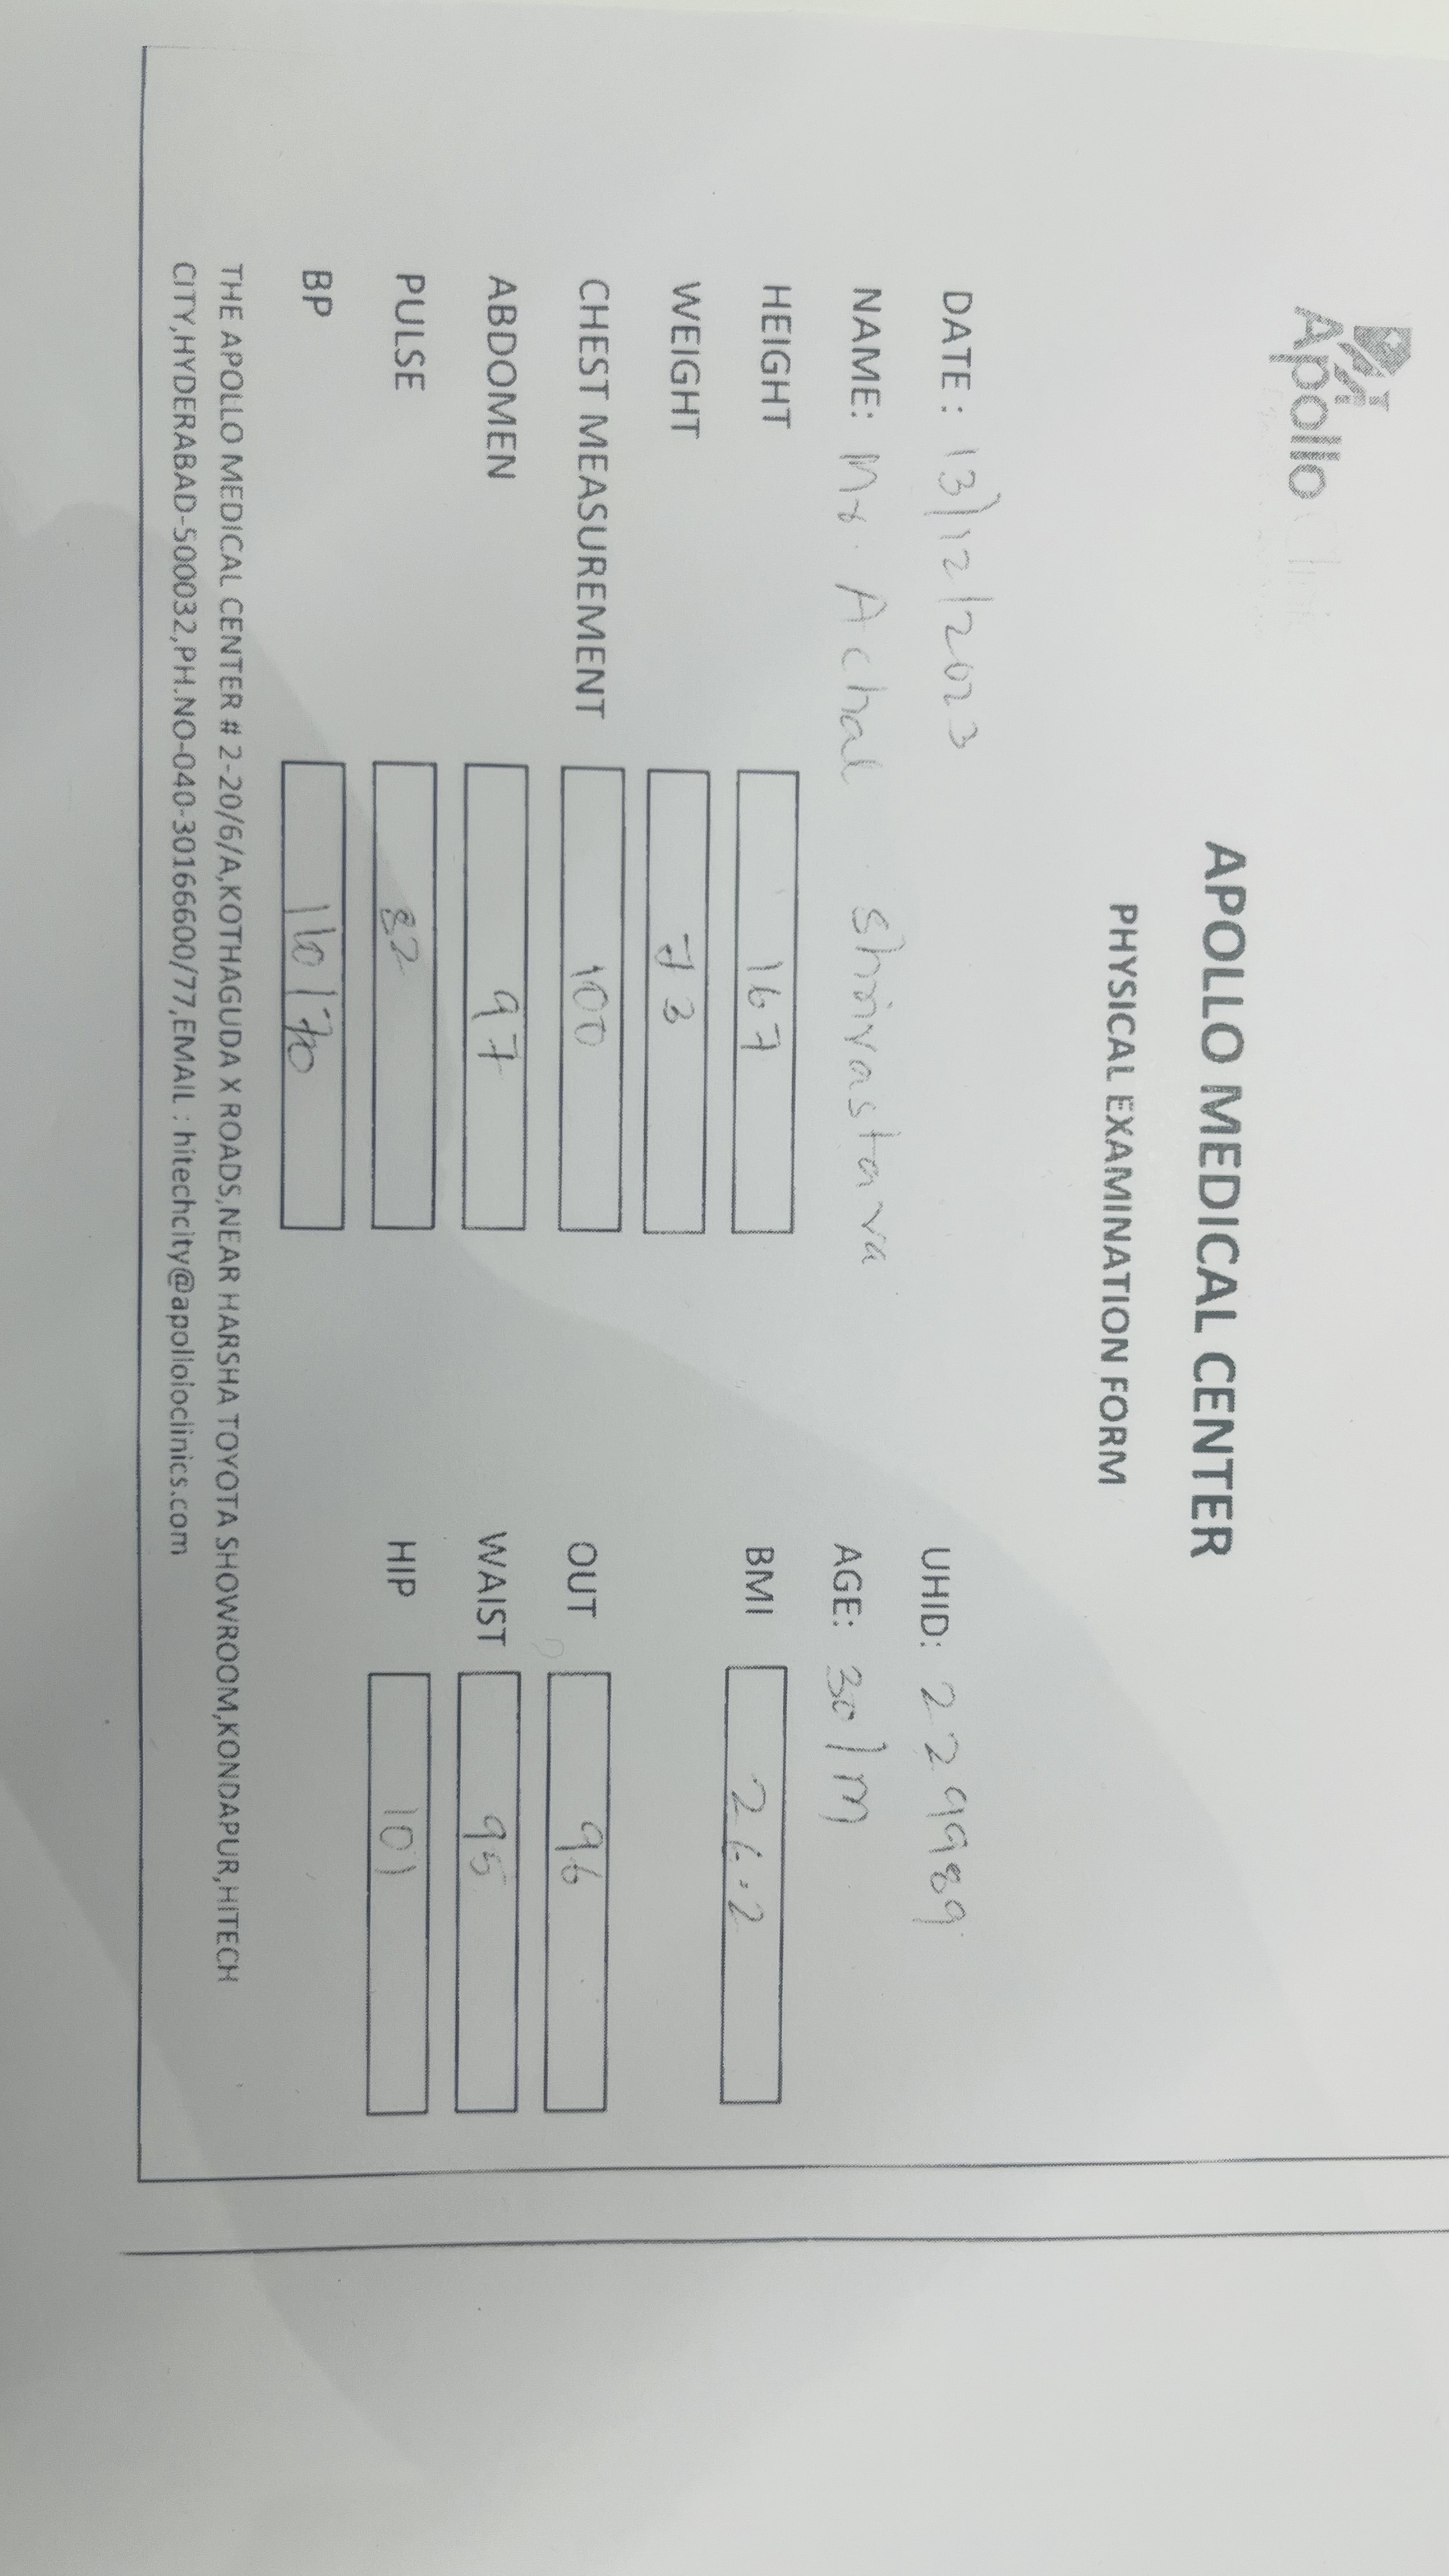 Apollo
APOLLO MEDICAL CENTER
PHYSICAL EXAMINATION FORM
DATE: 13/12/2023 UHID: 229989
NAME: Mr. Achal Shrivastava AGE: 30/M
HEIGHT 167 BMI 26.2
WEIGHT 73
CHEST MEASUREMENT 100 OUT 96
ABDOMEN 97 WAIST 95
PULSE 82 HIP 101
BP
THE APOLLO MEDICAL CENTER # 2-20/6/A,KOTHAGUDA X ROADS,NEAR HARSHA TOYOTA SHOWROOM,KONDAPUR,HITECH
CITY,HYDERABAD-500032,PH.NO-040-30166600/77,EMAIL : hitechcity@apolloloclinics.com